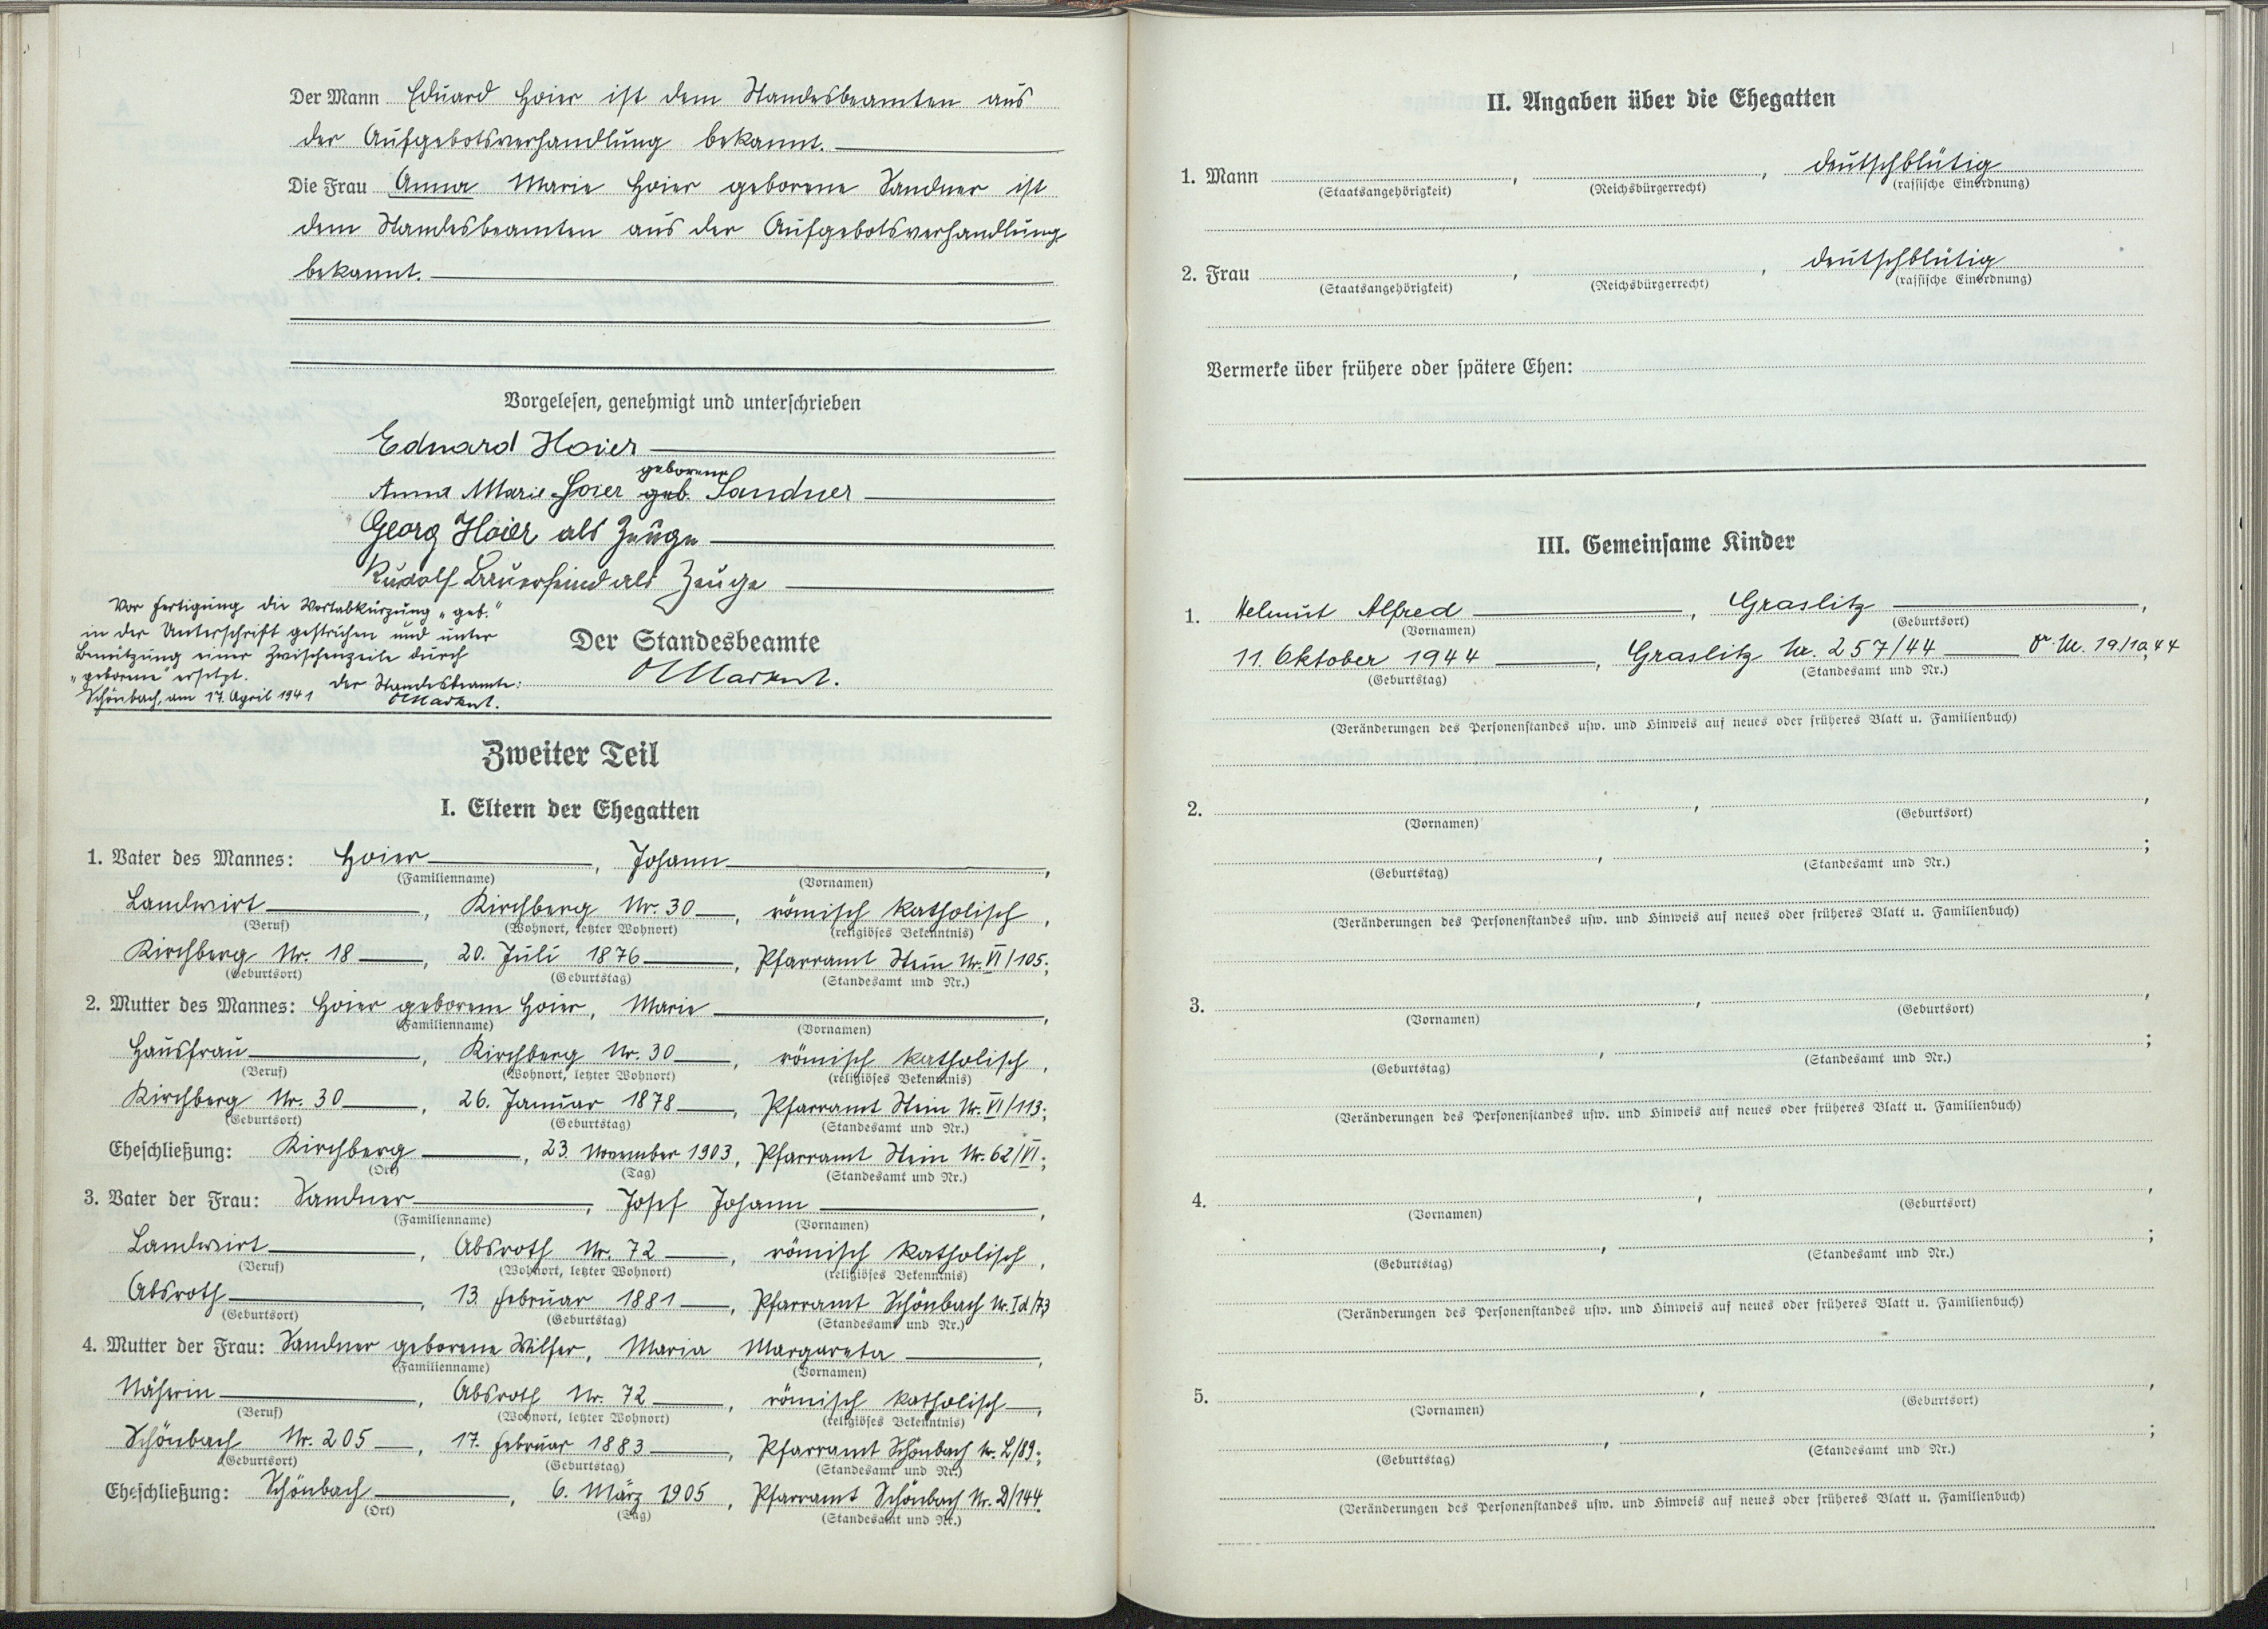 Der Mann Eduard Hoier ist dem Standesbeamten aus
der Aufgebotsverhandlung bekannt.
Die Frau Anna Marie Hoier geborene Sandner ist
dem Standesbeamten aus der Aufgebotsverhandlung
bekannt.
Vorgelesen, genehmigt und unterschrieben
Eduard Hoier
geborene
Anna Marie Hoier geb. Sandner
Georg Hoier als Zeuge
Rudolf Bauerfeind als Zeuge
Vor Fertigung die Wortabkürzung „geb."
in der Unterschrift gestrichen und unter
Benützung einer Zwischenzeile durch
„geborene" ersetzt.
Schönbach, am 17. April 1941
Der Standesbeamte:
Der Standesbeamte
Zweiter Teil
I. Eltern der Ehegatten
1. Vater des Mannes: Hoier, Johann,
(Familienname) (Vornamen)
Landwirt, Kirchberg Nr. 30, römisch katholisch,
(Beruf) (Wohnort, letzter Wohnort) (religiöses Bekenntnis)
Kirchberg Nr. 18, 20. Juli 1876, Pfarramt Stein Nr. VI/105;
(Geburtsort) (Geburtstag) (Standesamt und Nr.)
2. Mutter des Mannes: Hoier geborene Hoier, Marie,
(Familienname) (Vornamen)
Hausfrau, Kirchberg Nr. 30, römisch katholisch,
(Beruf) (Wohnort, letzter Wohnort) (religiöses Bekenntnis)
Kirchberg Nr. 30, 26. Januar 1878, Pfarramt Stein Nr. VI/113;
(Geburtsort) (Geburtstag) (Standesamt und Nr.)
Eheschließung: Kirchberg, 23. November 1903, Pfarramt Stein Nr. 62/VI;
(Ort) (Tag) (Standesamt und Nr.)
3. Vater der Frau: Sandner, Josef Johann,
(Familienname) (Vornamen)
Landwirt, Absroth Nr. 72, römisch katholisch,
(Beruf) (Wohnort, letzter Wohnort) (religiöses Bekenntnis)
Absroth, 13. Februar 1881, Pfarramt Schönbach Nr. Id/73
(Geburtsort) (Geburtstag) (Standesamt und Nr.)
4. Mutter der Frau: Sandner geborene Wilfer, Maria Margareta,
(Familienname) (Vornamen)
Näherin, Absroth Nr. 72, römisch katholisch,
(Beruf) (Wohnort, letzter Wohnort) (religiöses Bekenntnis)
Schönbach Nr. 205, 17. Februar 1883, Pfarramt Schönbach Nr. L/89;
(Geburtsort) (Geburtstag) (Standesamt und Nr.)
Eheschließung: Schönbach, 6. März 1905, Pfarramt Schönbach Nr. D/144.
(Ort) (Tag) (Standesamt und Nr.)
II. Angaben über die Ehegatten
1. Mann , , deutschblütig
(Staatsangehörigkeit) (Reichsbürgerrecht) (rassische Einordnung)
2. Frau , , deutschblütig
(Staatsangehörigkeit) (Reichsbürgerrecht) (rassische Einordnung)
Vermerke über frühere oder spätere Ehen:
III. Gemeinsame Kinder
1. Helmut Alfred, Graslitz,
(Vornamen) (Geburtsort)
11. Oktober 1944, Graslitz Nr. 257/44
(Geburtstag) (Standesamt und Nr.)
(Veränderungen des Personenstandes usw. und Hinweis auf neues oder früheres Blatt u. Familienbuch)
2. , ,
(Vornamen) (Geburtsort)
, ;
(Geburtstag) (Standesamt und Nr.)
(Veränderungen des Personenstandes usw. und Hinweis auf neues oder früheres Blatt u. Familienbuch)
3. , ,
(Vornamen) (Geburtsort)
, ;
(Geburtstag) (Standesamt und Nr.)
(Veränderungen des Personenstandes usw. und Hinweis auf neues oder früheres Blatt u. Familienbuch)
4. , ,
(Vornamen) (Geburtsort)
, ;
(Geburtstag) (Standesamt und Nr.)
(Veränderungen des Personenstandes usw. und Hinweis auf neues oder früheres Blatt u. Familienbuch)
5. , ,
(Vornamen) (Geburtsort)
, ;
(Geburtstag) (Standesamt und Nr.)
(Veränderungen des Personenstandes usw. und Hinweis auf neues oder früheres Blatt u. Familienbuch)